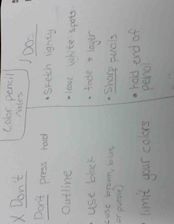 Color pencil
rules
X Don't
Don't press hard
Outline
• use black
(use brown, blue,
or purple)
limit your colors
✓ Dos:
• sketch lightly
• leave white spots
• fade & layer
• Sharp pencils
• hold end of
pencil